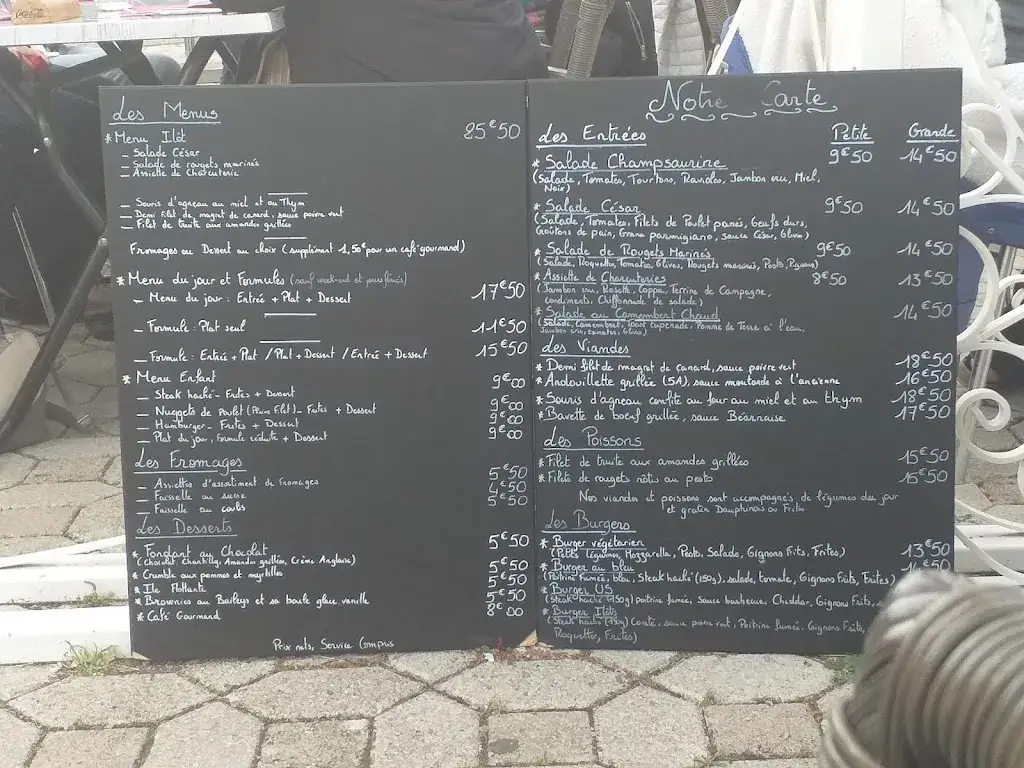 Coca-Cola
Les Menus
* Menu Ilôt 25€50
_ Salade César
_ Salade de rougets marinés
_ Assiette de Charcuterie
_ Souris d'agneau au miel et au Thym
_ Demi filet de magret de canard, sauce poivre vert
_ Filet de truite aux amandes grillées
Fromages ou Dessert au choix (supplément 1,50€ pour un café gourmand)
* Menu du jour et Formules (sauf week-end et jours fériés)
_ Menu du jour : Entrée + Plat + Dessert 17€50
_ Formule : Plat seul 11€50
_ Formule : Entrée + Plat / Plat + Dessert / Entrée + Dessert 15€50
* Menu Enfant 9€00
_ Steak haché - Frites + Dessert 9€00
_ Nuggets de Poulet (Plein Filet) - Frites + Dessert 9€00
_ Hamburger - Frites + Dessert 9€00
_ Plat du jour, formule réduite + Dessert
Les Fromages
_ Assiette d'assortiment de Fromages 5€50
_ Faisselle au sucre 4€50
_ Faisselle au coulis 5€50
Les Desserts
* Fondant au Chocolat 5€50
(chocolat, Chantilly, Amandes grillées, Crème Anglaise)
* Crumble aux pommes et myrtilles 5€50
* Ile Flottante 5€50
* Brownies au Baileys et sa boule glace vanille 5€50
* Café Gourmand 8€00
Prix nets, Service Compris
Notre Carte
Les Entrées Petite Grande
* Salade Champsaurine 9€50 14€50
(Salade, Tomates, Tourtons, Ravioles, Jambon cru, Miel,
Noix)
* Salade César 9€50 14€50
(Salade, Tomates, Filets de Poulet panés, Oeufs durs,
Croûtons de pain, Grana parmigiano, sauce César, Olives)
* Salade de Rougets Marinés 9€50 14€50
(Salade, Roquette, Tomates, Olives, Rougets marinés, Pesto, Pignons)
* Assiette de Charcuteries 8€50 13€50
(Jambon cru, Rosette, Coppa, Terrine de Campagne,
condiments, Chiffonnade de salade)
* Salade au Camembert Chaud 14€50
(Salade, Camembert, Toast tapenade, Pomme de Terre à l'eau,
Jambon cru, tomates, Olives)
Les Viandes
* Demi filet de magret de canard, sauce poivre vert 18€50
* Andouillette grillée (5A), sauce moutarde à l'ancienne 16€50
* Souris d'agneau confite au four au miel et au thym 18€50
* Bavette de boeuf grillée, sauce Béarnaise 17€50
Les Poissons
* Filet de truite aux amandes grillées 15€50
* Filets de rougets rôtis au pesto 15€50
Nos viandes et poissons sont accompagnés de légumes du jour
et gratin Dauphinois ou Frites
Les Burgers
* Burger végétarien 13€50
(Petits légumes, Mozzarella, Pesto, Salade, Oignons Frits, Frites)
* Burger au bleu
(Poitrine fumée, bleu, steak haché (150g), salade, tomate, Oignons Frits, Frites)
* Burger US
(Steak haché (150g) poitrine fumée, sauce barbecue, Cheddar, Oignons Frits,
* Burger Ilôt
(Steak haché (150g) Comté, sauce poivre vert, Poitrine fumée, Oignons Frits,
Roquette, Frites)